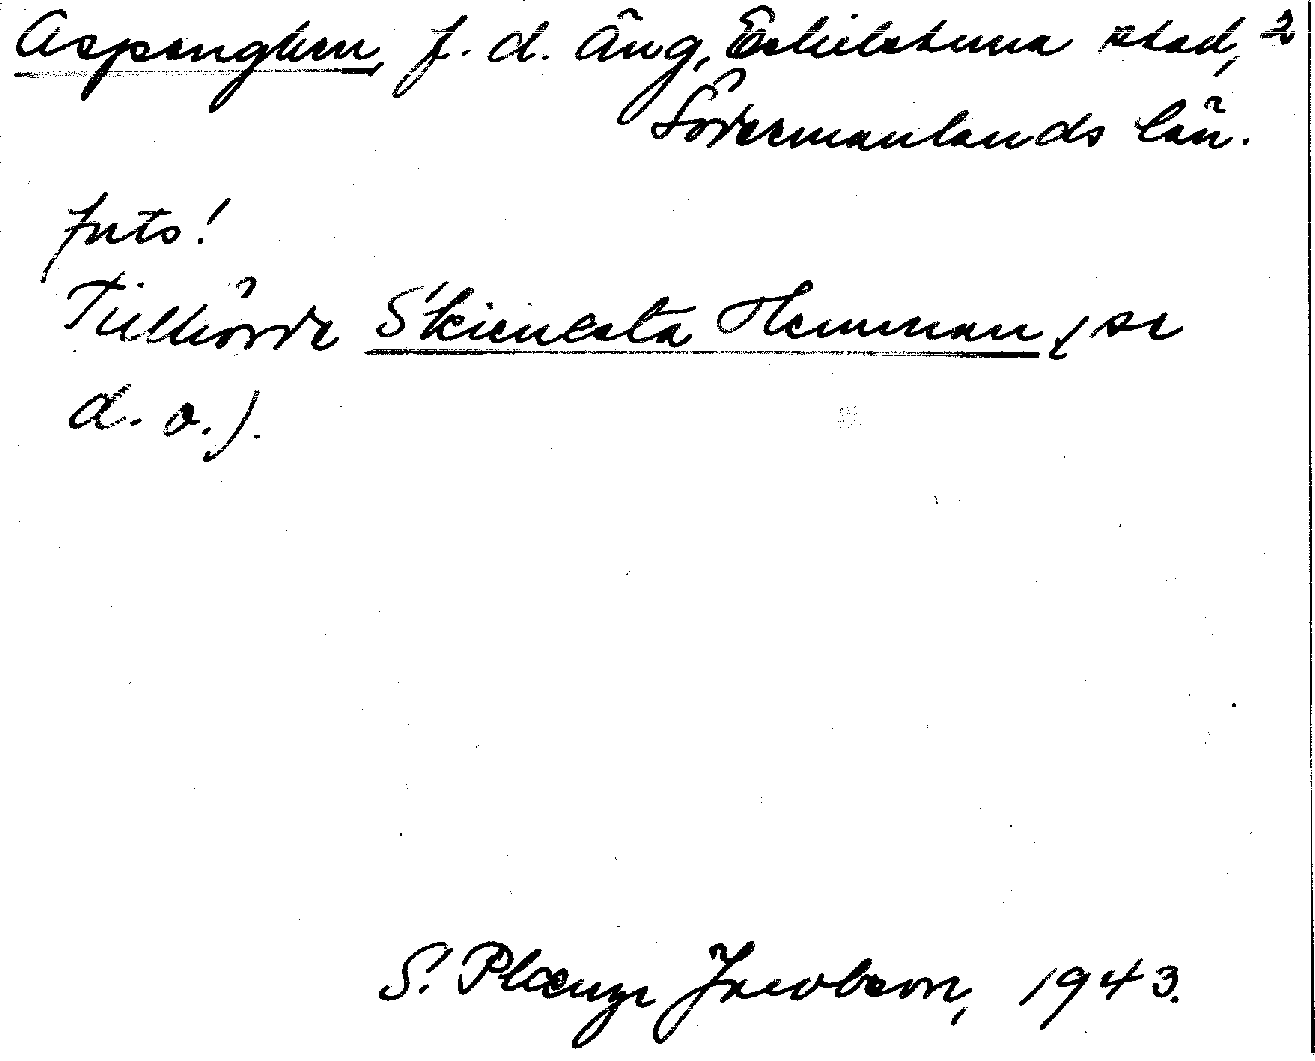 Aspänghen, f. d. äng, Eskilstuna stad, 2
Södermanlands län.
futs!
Tillhörde Skienlsta Hemman (se
d. o.).
S. Plænge Jacobson, 1943.